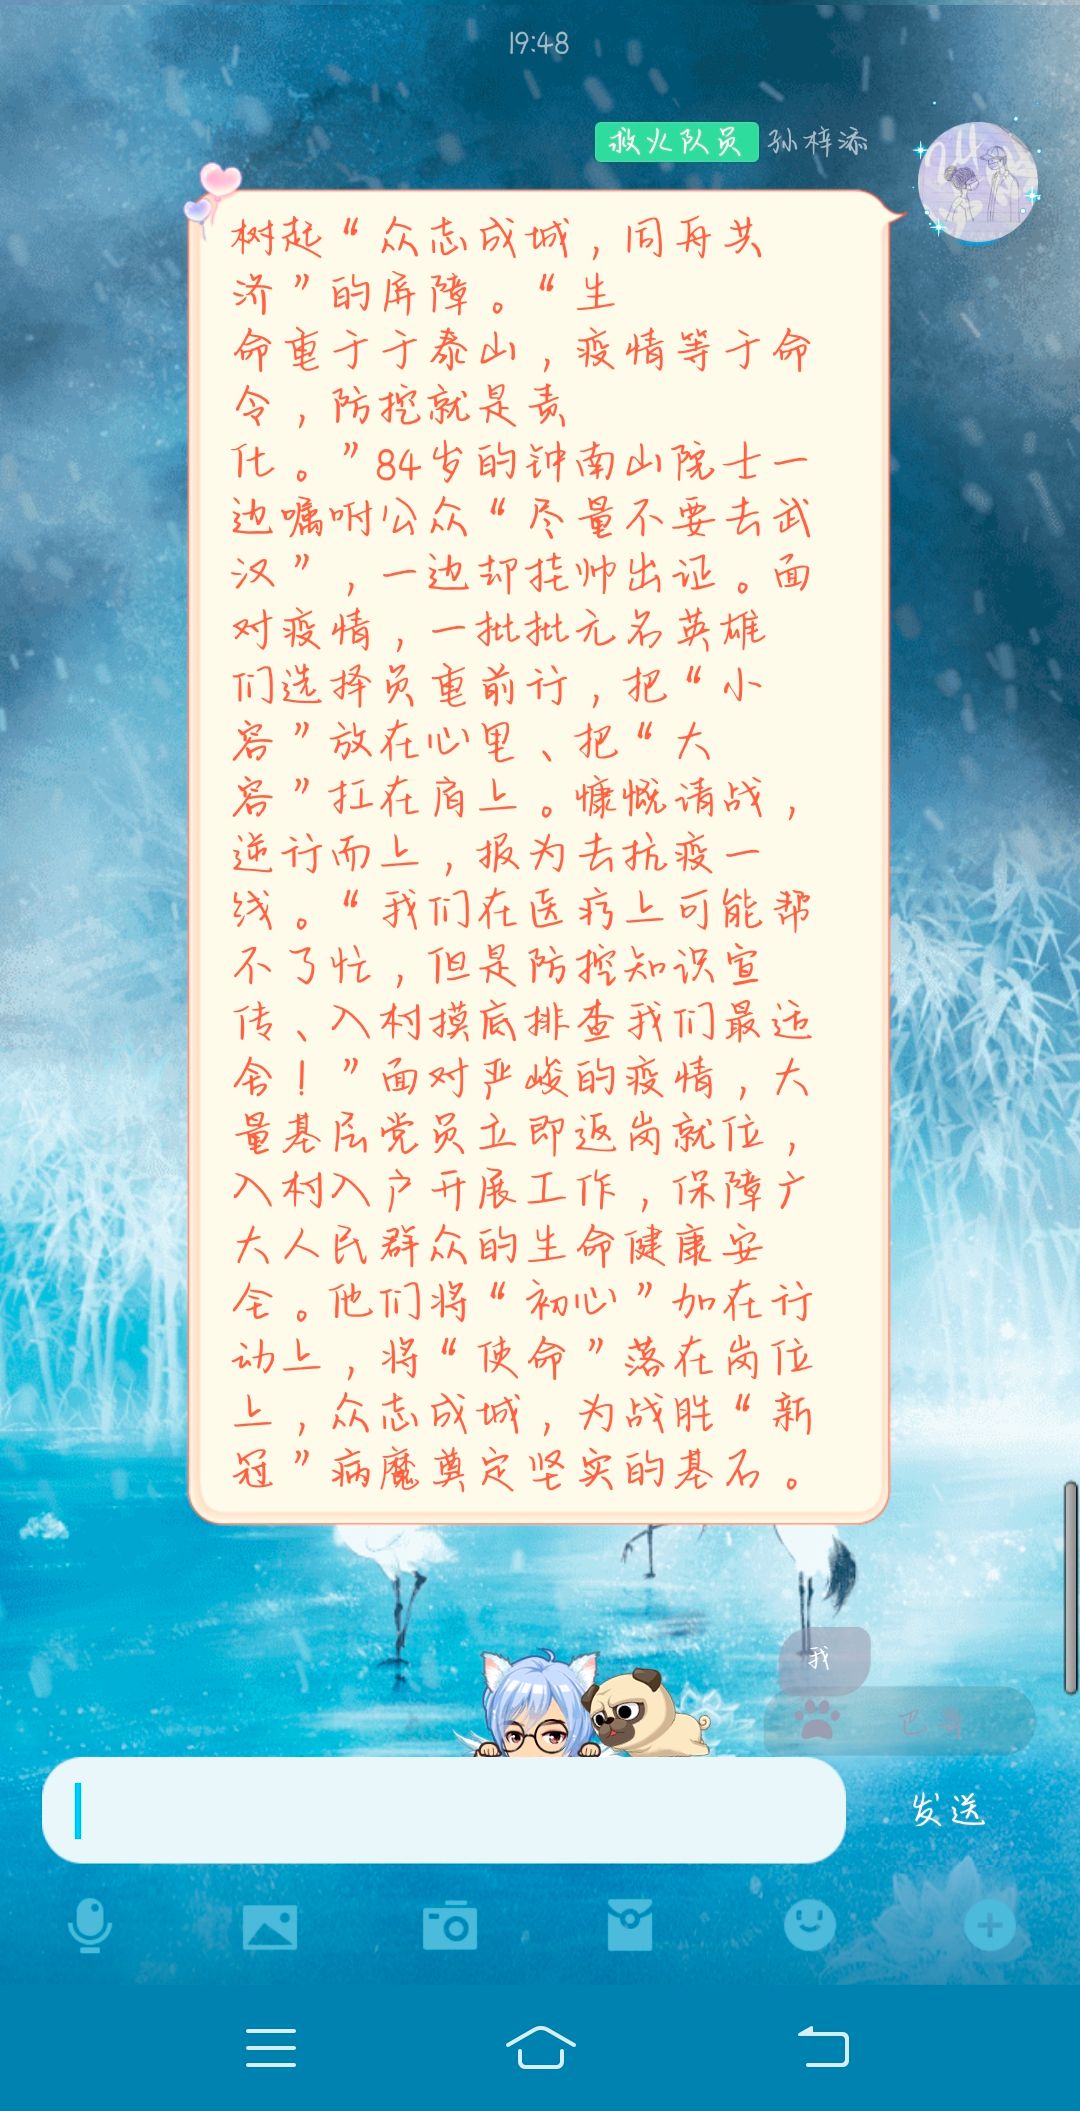 19:48
救火队员 孙梓添
树起“众志成城，同舟共
济”的屏障。“生
命重于于泰山，疫情等于命
令，防挖就是责
化。”84岁的钟南山院士一
边嘱咐公众“尽量不要去武
汉”，一边却挂帅出证。面
对疫情，一批批元名英雄
们选择员重前行，把“小
容”放在心里、把“大
容”扛在肩上。慷慨请战，
逆行而上，报为去抗疫一
线。“我们在医疗上可能帮
不了忙，但是防挖知识宣
传、入村摸底排查我们最适
舍！”面对严峻的疫情，大
量基层党员立即返岗就位，
入村入户开展工作，保障广
大人民群众的生命健康安
全。他们将“初心”加在行
动上，将“使命”落在岗位
上，众志成城，为战胜“新
冠”病魔奠定坚实的基石。
我
发送